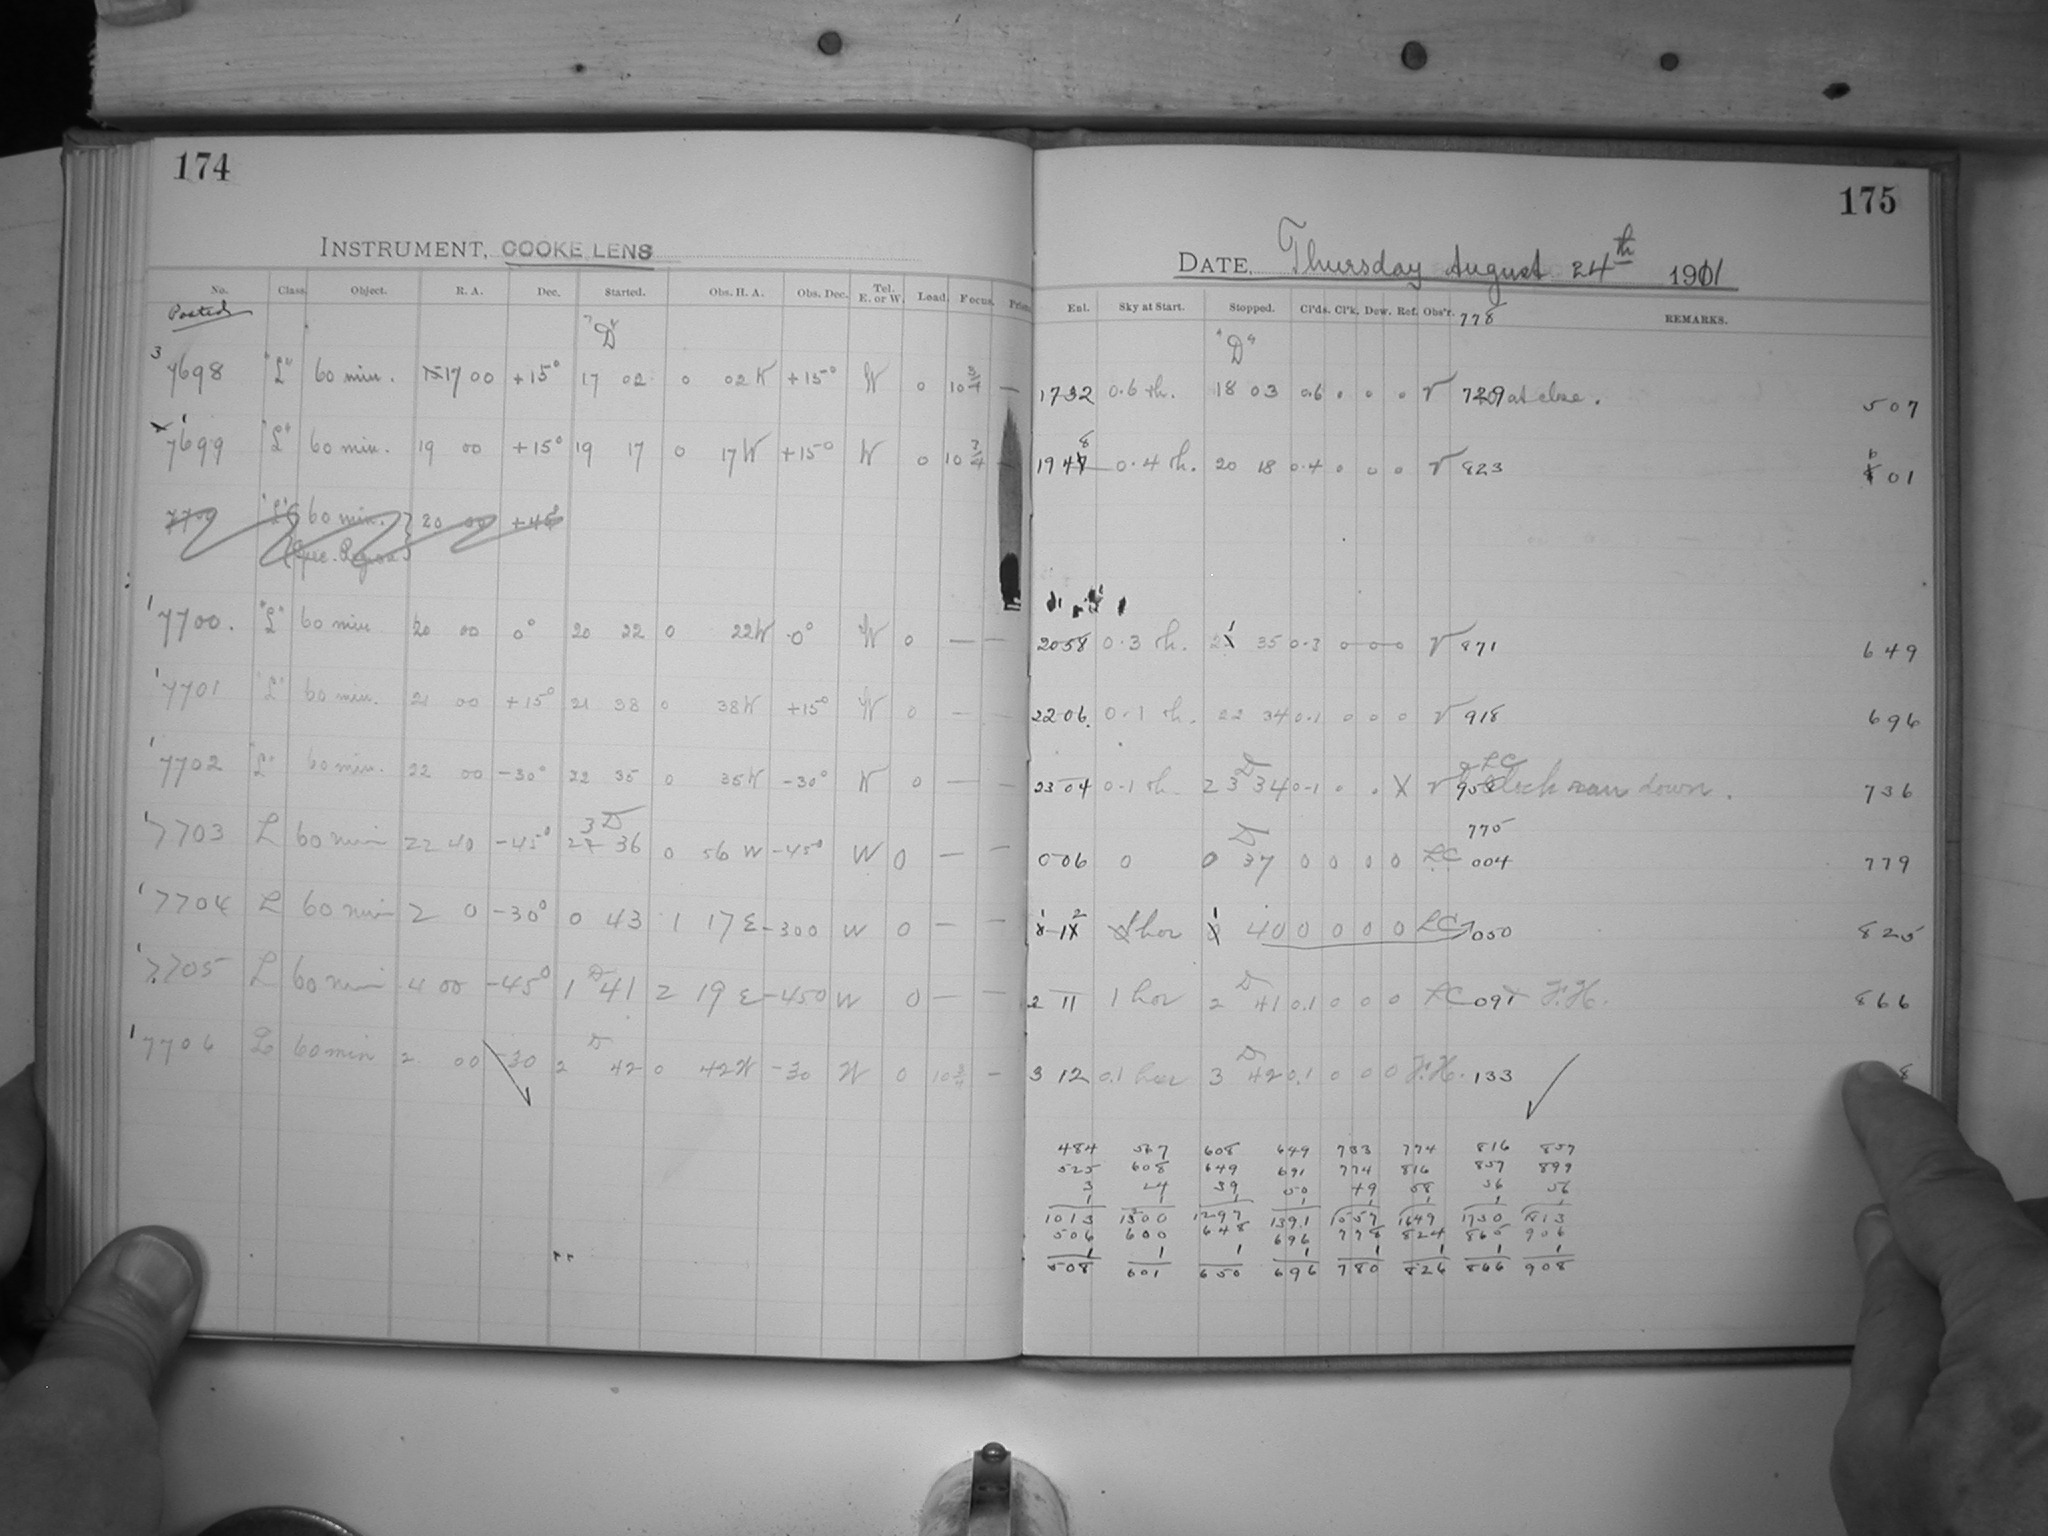 174
INSTRUMENT, COOKE LENS
No. Class. Object. R. A. Dec. Started. Obs. H. A. Obs. Dec. Tel. E. or W. Load. Focus.
Posted
"D"
3 7698 "L" 60 min. 17 00 +15° 17 02 0 02 W +15° W 0 10 3/4 —
1 7699 "L" 60 min. 19 00 +15° 19 17 0 17 W +15° W 0 10 3/4 —
7700 "L" 60 min. 20 00 +45°
(Spec. Region)
1 7700. "L" 60 min 20 00 0° 20 22 0 22 W 0° W 0 — —
1 7701 "L" 60 min. 21 00 +15° 21 38 0 38 W +15° W 0 — —
1 7702 "L" 60 min. 22 00 -30° 22 35 0 35 W -30° W 0 — —
D
1 7703 L 60 min 22 40 -45° 23 36 0 56 W -45° W 0 — —
1 7704 L 60 min 2 0 -30° 0 43 1 17 E -300 W 0 — —
D
1 7705 L 60 min 4 00 -45° 1 41 2 19 E -450 W 0 — —
D
1 7706 L 60 min 2 00 -30 2 42 0 42 W -30 W 0 10 3/4 —
175
DATE, Thursday August 24th 1911
Enl. Sky at Start. Stopped. Cl'ds. Cl'k. Dew. Ref. Obs'r. REMARKS.
778
"D"
1732 0.6 th. 18 03 0.6 0 0 0 V 729 at close. 507
1948 0.4 th. 20 18 0.4 0 0 0 V 823 601
2058 0.3 th. 21 35 0.3 0 0 0 V 871 649
2206. 0.1 th. 22 34 0.1 0 0 0 V 918 696
D & LC
2304 0.1 th. 23 34 0.1 0 0 X V 958 Clock ran down. 736
D 775
006 0 0 37 0 0 0 0 LC 004 779
1 12 1 hor 1 40 0 0 0 0 LC 050 825
D
2 11 1 hor 2 41 0.1 0 0 0 LC 091 F.H. 866
D
3 12 0.1 hor 3 42 0.1 0 0 0 F.H. 133 8
484 567 608 649 733 774 816 857
525 608 649 691 774 816 857 899
3 24 39 50 49 58 56 56
1 1 1 1 1 1 1 1
1013 1300 1297 1391 1557 1649 1730 1813
506 600 648 696 778 824 865 906
1 1 1 1 1 1 1 1
508 601 650 696 780 826 866 908